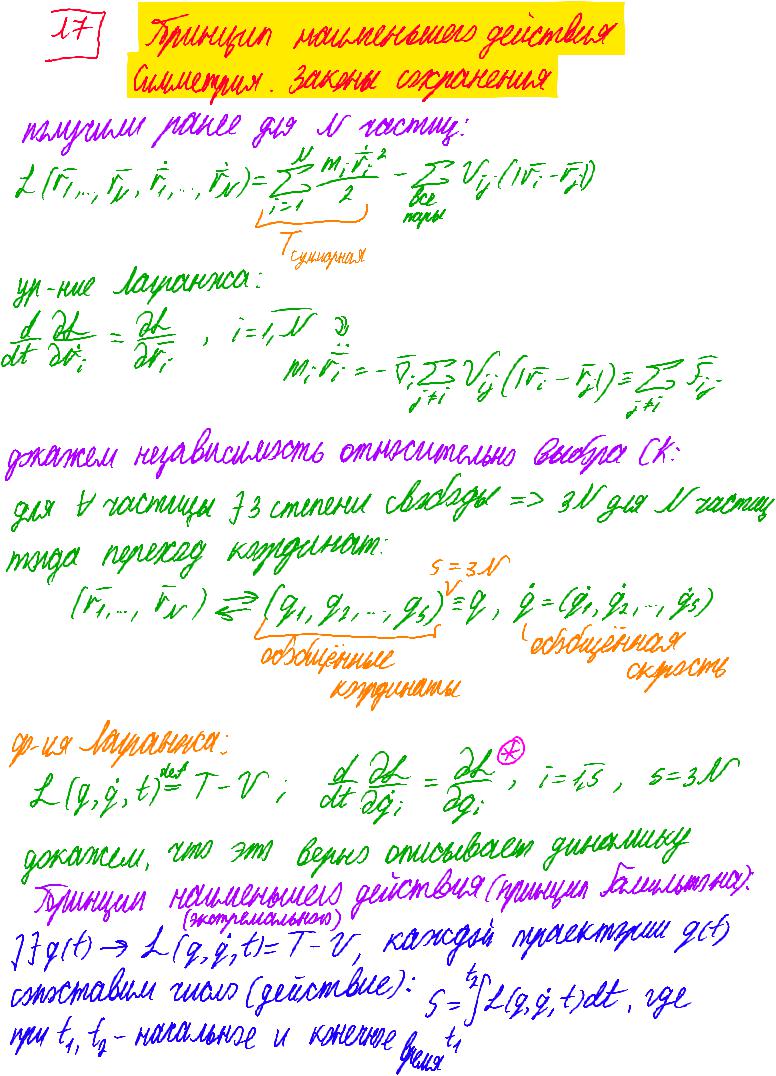 17
Принцип наименьшего действия
Симметрия. Законы сохранения
получили ранее для N частиц:
L(r̄₁,..., r̄_N, ṙ̄₁,..., ṙ̄_N) = Σ_{i=1}^{N} m_i ṙ̄_i²/2 − Σ_{все пары} V_ij(|r̄_i − r̄_j|)
T суммарная
ур-ние Лагранжа:
d/dt ∂L/∂ṙ̄_i = ∂L/∂r̄_i , i = 1,N
m_i r̄̈_i = −∇̄_i Σ_{j≠i} V_ij(|r̄_i − r̄_j|) ≡ Σ_{j≠i} F̄_ij
докажем независимость относительно выбора СК:
для ∀ частицы ∃ 3 степени свободы => 3N для N частиц
тогда переход координат:
s = 3N
(r̄₁,..., r̄_N) ⇄ (q₁, q₂,..., q_s) ≡ q , q̇ = (q̇₁, q̇₂,..., q̇_s)
обобщённые координаты
обобщённая скорость
ф-ия Лагранжа:
L(q, q̇, t) def= T − V ; d/dt ∂L/∂q̇_i = ∂L/∂q_i ⊛ , i = 1,s , s = 3N
докажем, что это верно описывает динамику
Принцип наименьшего действия (принцип Гамильтона):
(экстремального)
] ∃ q(t) → L(q, q̇, t) = T − V, каждой траектории q(t)
сопоставим число (действие): S = ∫_{t₁}^{t₂} L(q, q̇, t) dt, где
при t₁, t₂ - начальное и конечное время